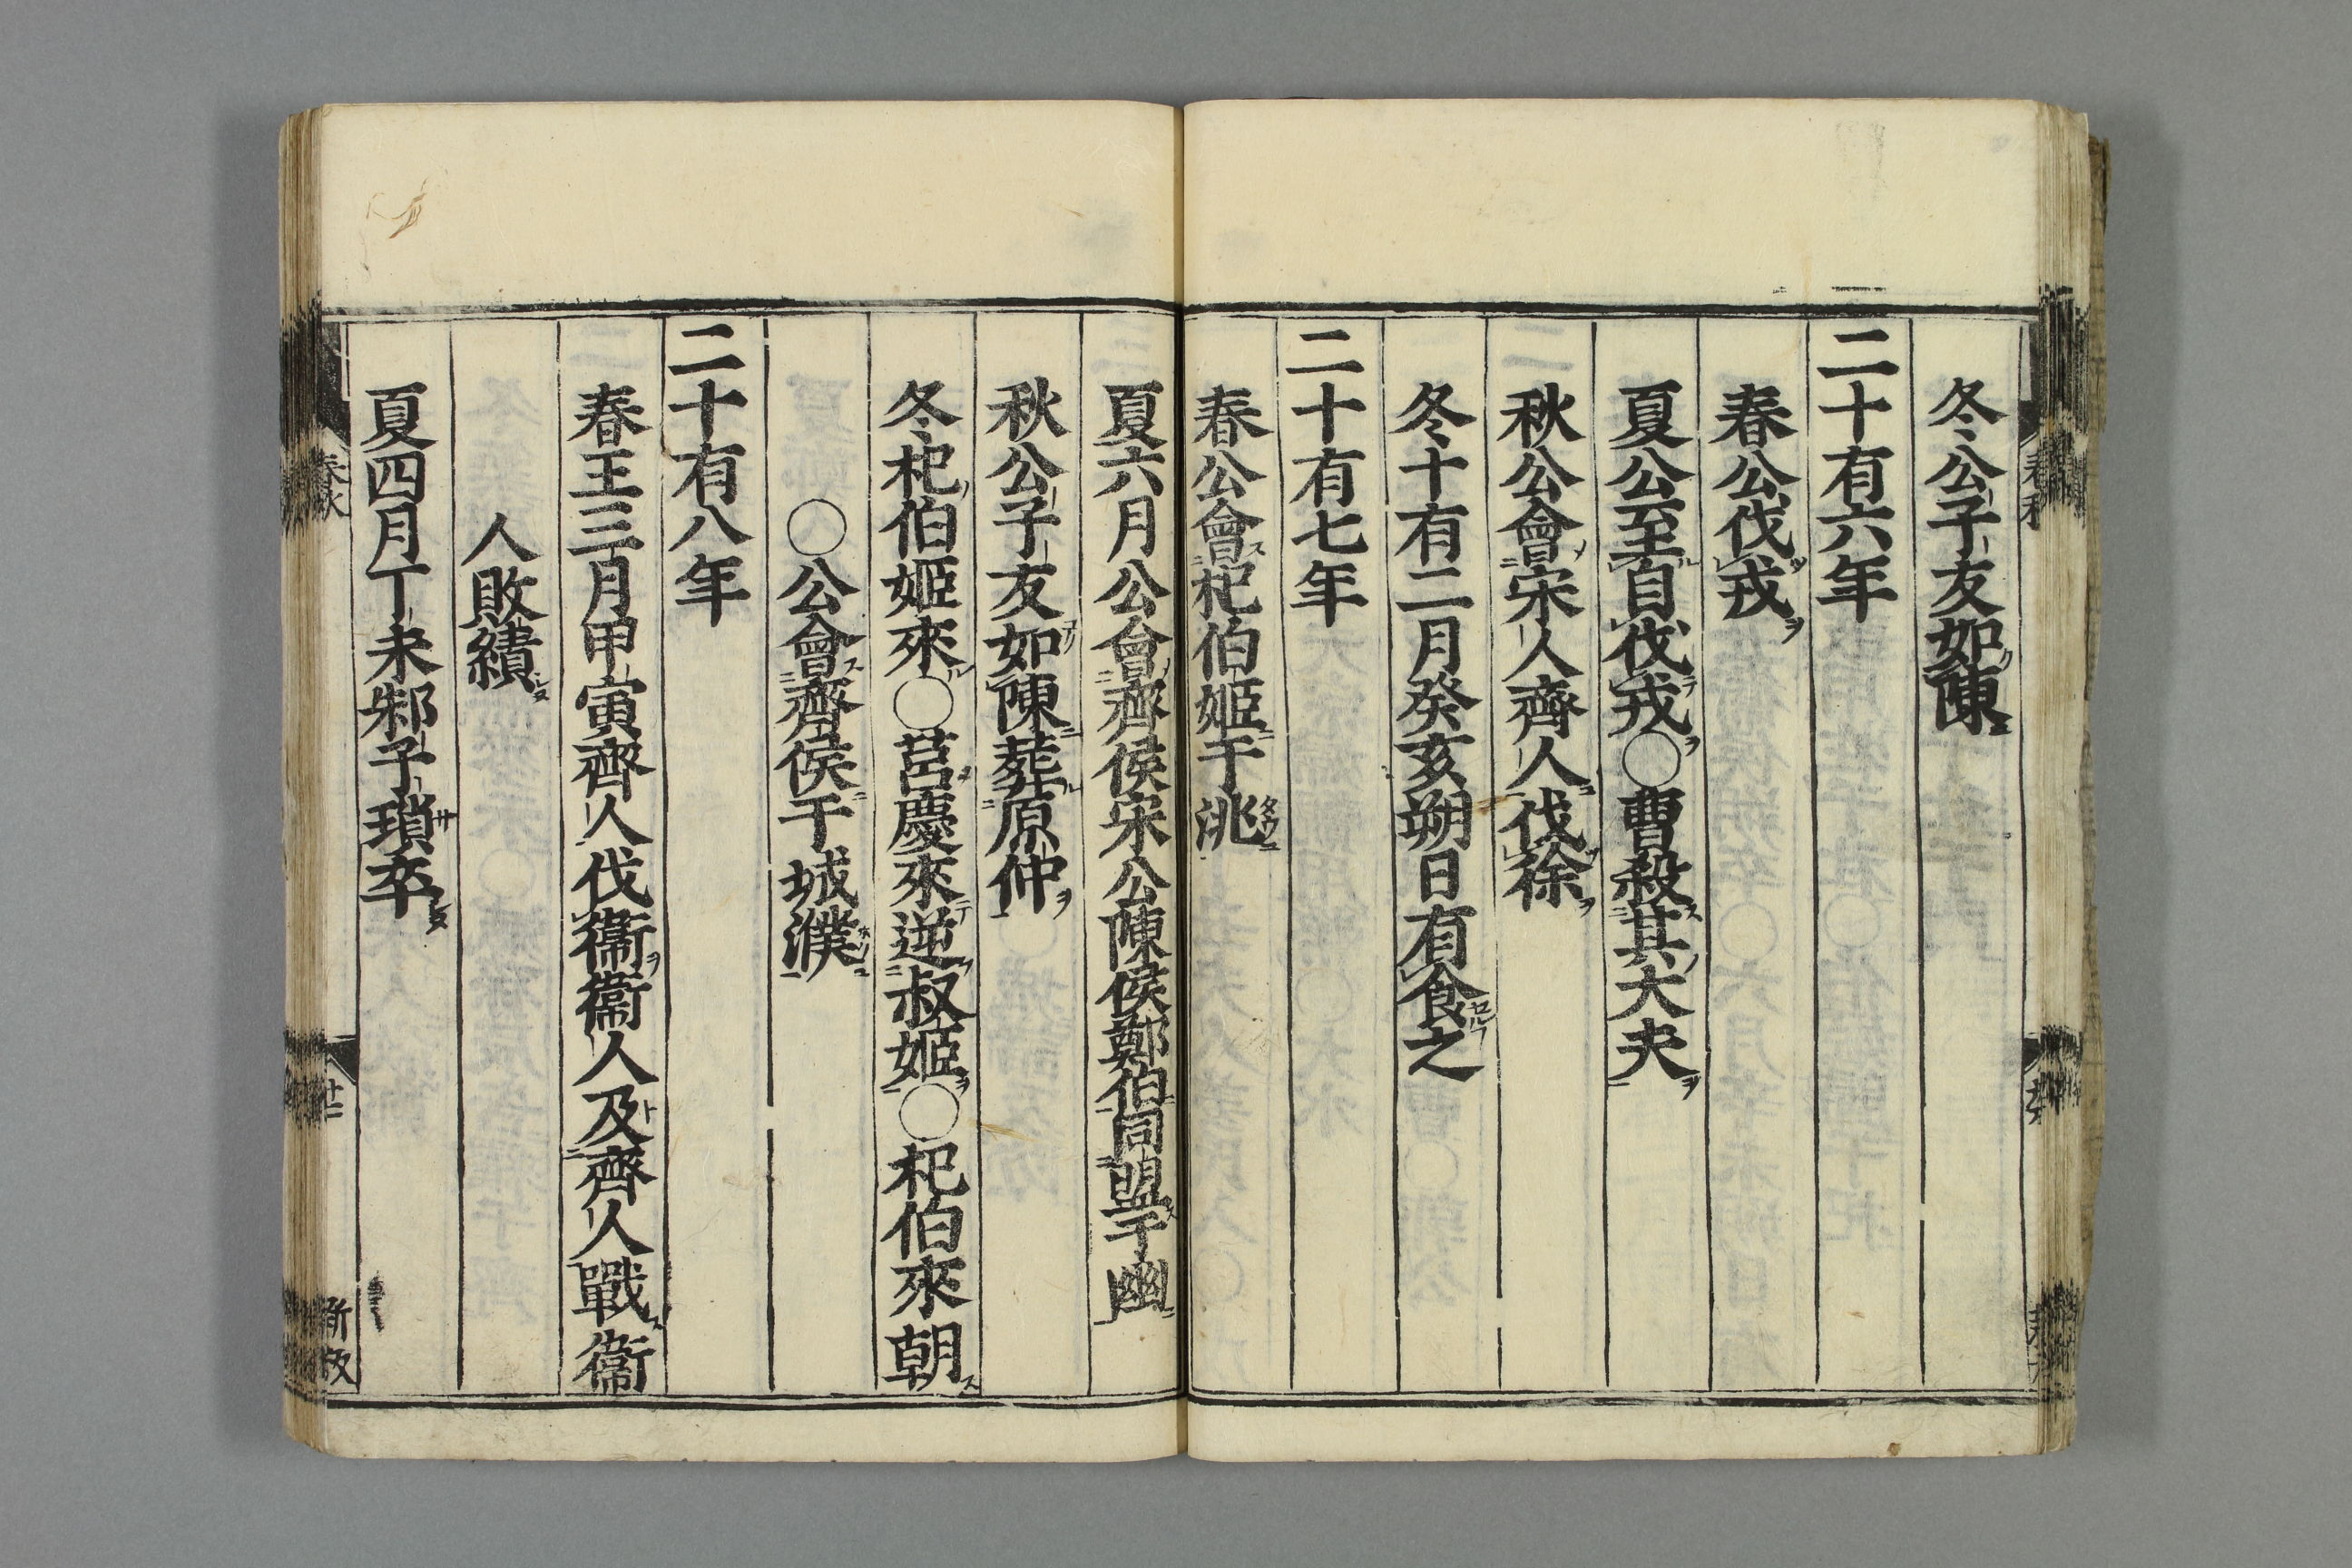 冬公子友如陳
二十有六年
春公伐戎
夏公至自伐戎〇曹殺其大夫
秋公會宋人齊人伐徐
冬十有二月癸亥朔日有食之
二十有七年
春公會杞伯姬于洮
夏六月公會齊侯宋公陳侯鄭伯同盟于幽
秋公子友如陳葬原仲
冬杞伯姬來〇莒慶來逆叔姬〇杞伯來朝
〇公會齊侯于城濮
二十有八年
春王三月甲寅齊人伐衞衞人及齊人戰衞
人敗績
夏四月丁未邾子瑣卒
春秋
廿二
新板